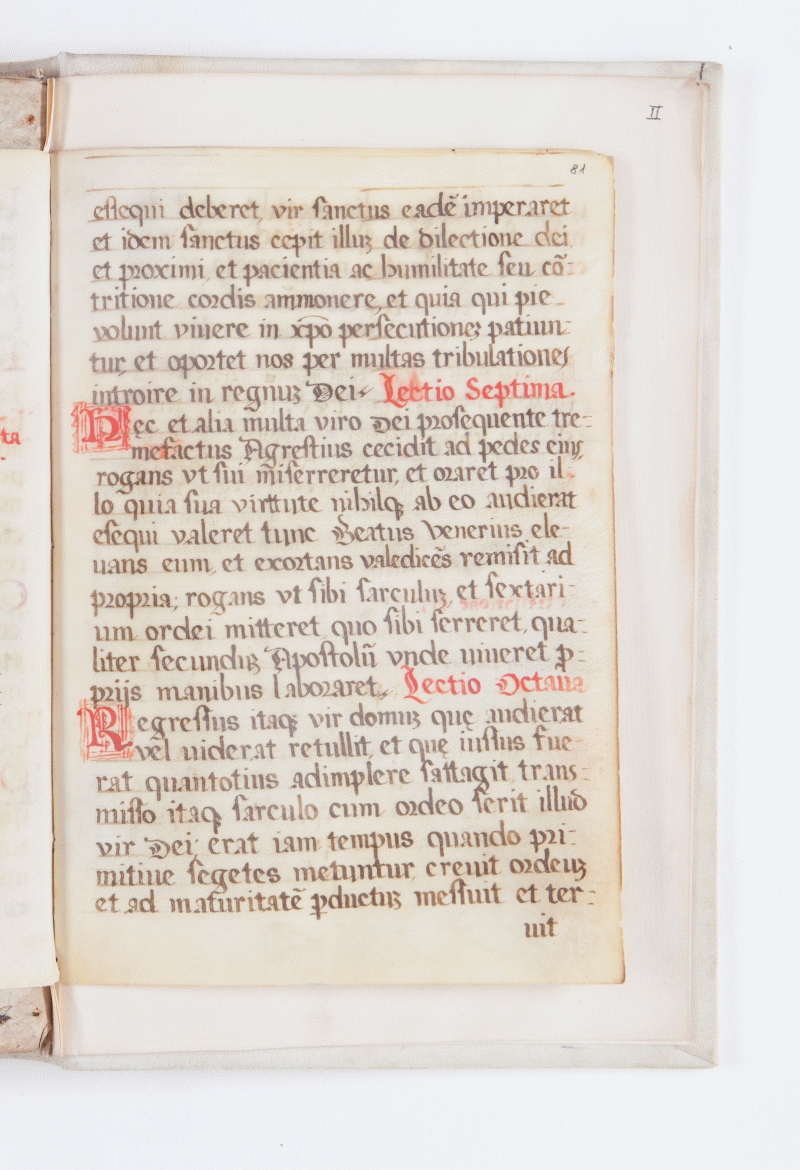 II
81
eſſequi deberet, vir ſanctus eadē imperaret
et idem ſanctus cepit illuꝫ de dilectione dei
et proximi, et pacientia ac humilitate ſeu cō:
tritione cordis ammonere, et quia qui pie
volunt viuere in xp̄o perſecutioneꝫ patiun:
tur, et oportet nos per multas tribulationeſ
introire in regnuꝫ Dei. Lectio Septima.
Hec et alia multa viro Dei proſequente tre:
mefactus Agreſtius cecidit ad pedes eius
rogans vt ſui miſerreretur, et oraret pro il:
lo quia ſua virttute nihilqꝫ ab eo audierat
eſequi valeret tunc Beatus Venerius ele-
uans eum, et exortans valedicēs remiſit ad
propria; rogans vt ſibi ſarculuꝫ, et ſextari:
um ordei mitteret, quo ſibi ſerreret, qua:
liter ſecunduꝫ Apoſtolū vnde uiueret ꝓ:
prijs manibus laboraret. Lectio Octaua
Regreſſus itaqꝫ vir domuꝫ quę audierat
vel uiderat retullit, et quę iuſſus fue-
rat quantotius adimplere ſattagit, trans:
miſſo itaqꝫ ſarculo cum ordeo ſerit illud
vir Dei; erat iam tempus quando pri:
mitiue ſegetes metuntur, creuit ordeuꝫ
et ad maturitatē ꝓductuꝫ meſſuit et ter:
uit
ta